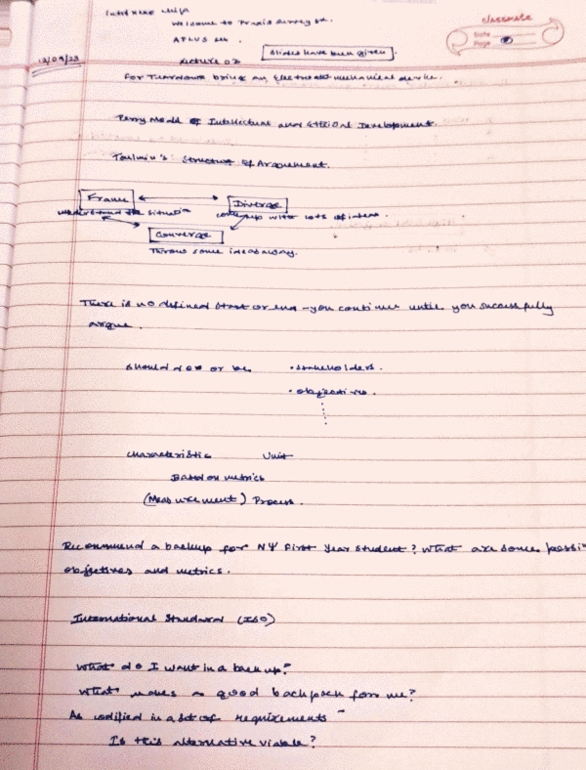 classmate
Date
Page
Welcome to Praxis
APLUS
Lecture 02
Slides have been given.
12/09/23
For Turnover bring an Electro mechanical device.
Perry Model of Intellectual and Ethical Development.
Toulmin's Structure of Arguement.
Frame
Diverge
understand the situation
come up with lots of ideas.
Converge
Throw some ideas away.
There is no defined start or end - you continue until you successfully
argue.
should do or be
• stakeholders.
• objectives.
Characteristic Unit
Based on metrics
(Measurement) Process.
Recommend a backup for NY First Year Student? What are some possi
objectives and metrics.
International Standard (ISO)
What do I want in a backup?
What makes a good backpack for me?
As codified in a set of requirements
Is this alternative viable?